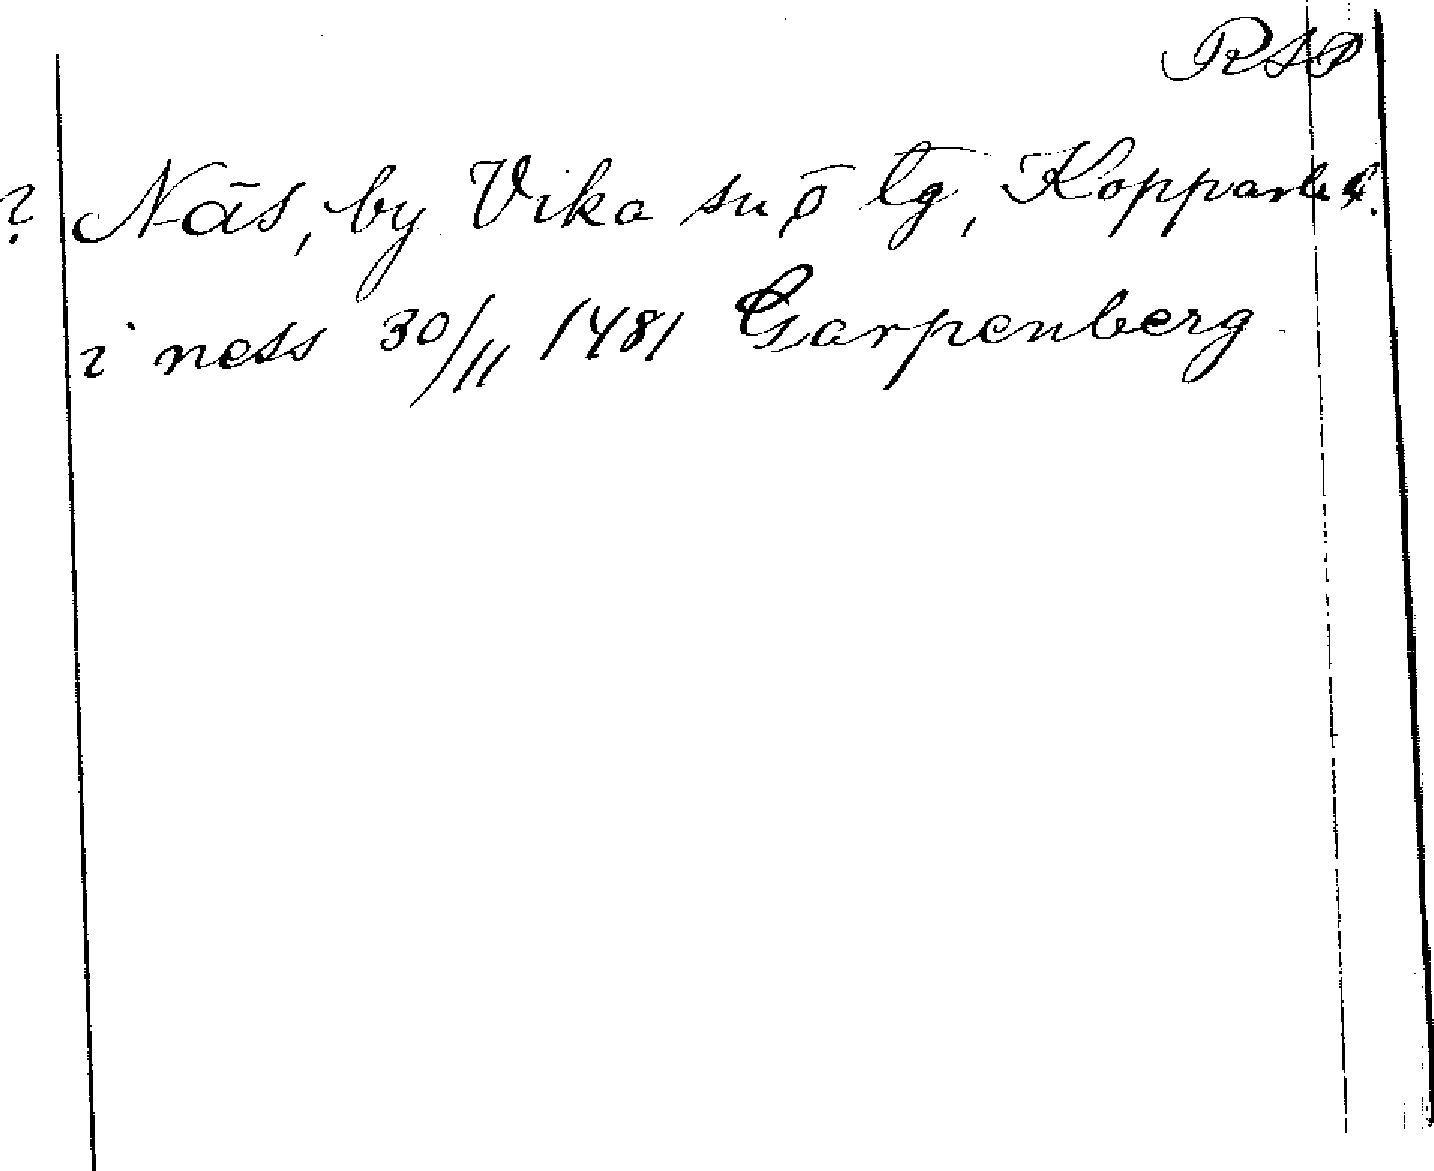 RAP
? Näs, by Vika sn, ö tg, Kopparb l.
i ness 30/11 1481 Garpenberg